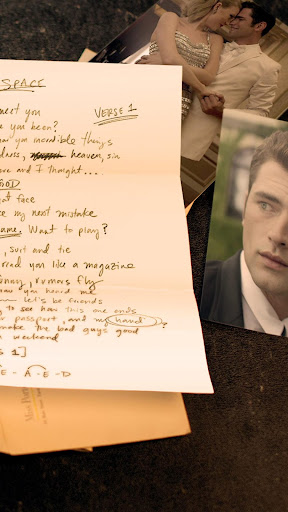 SPACE
VERSE 1
meet you
you been?
you incredible things
heaven, sin
and I thought...
GOD
at face
my next mistake
ame. Want to play?
, suit and tie
read you like a magazine
unny, rumors fly
you heard me
let's be friends
to see how this one ends
passport, and my hand
make the bad guys good
weekend
1]
E - A - E - D